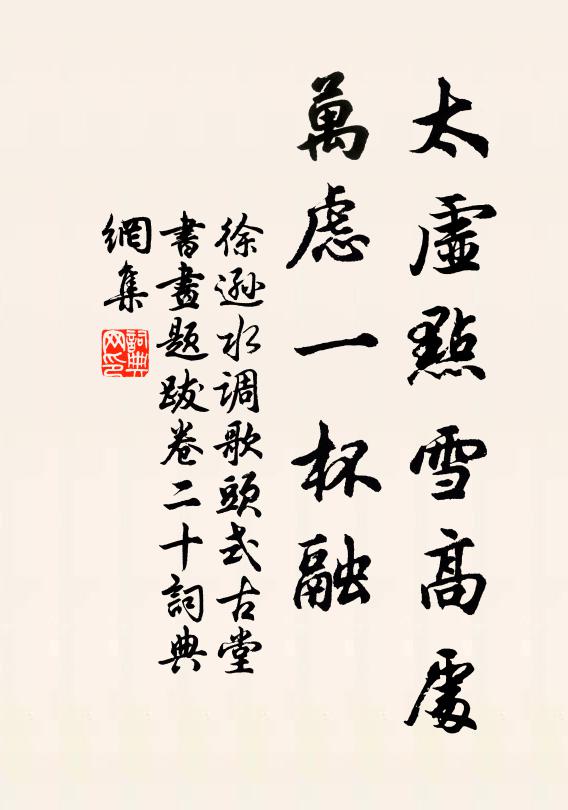 太虛點雪高處
萬慮一杯融
徐遜水调歌頭式古堂
書畫題跋卷二十詞典
網集
詞典
网印